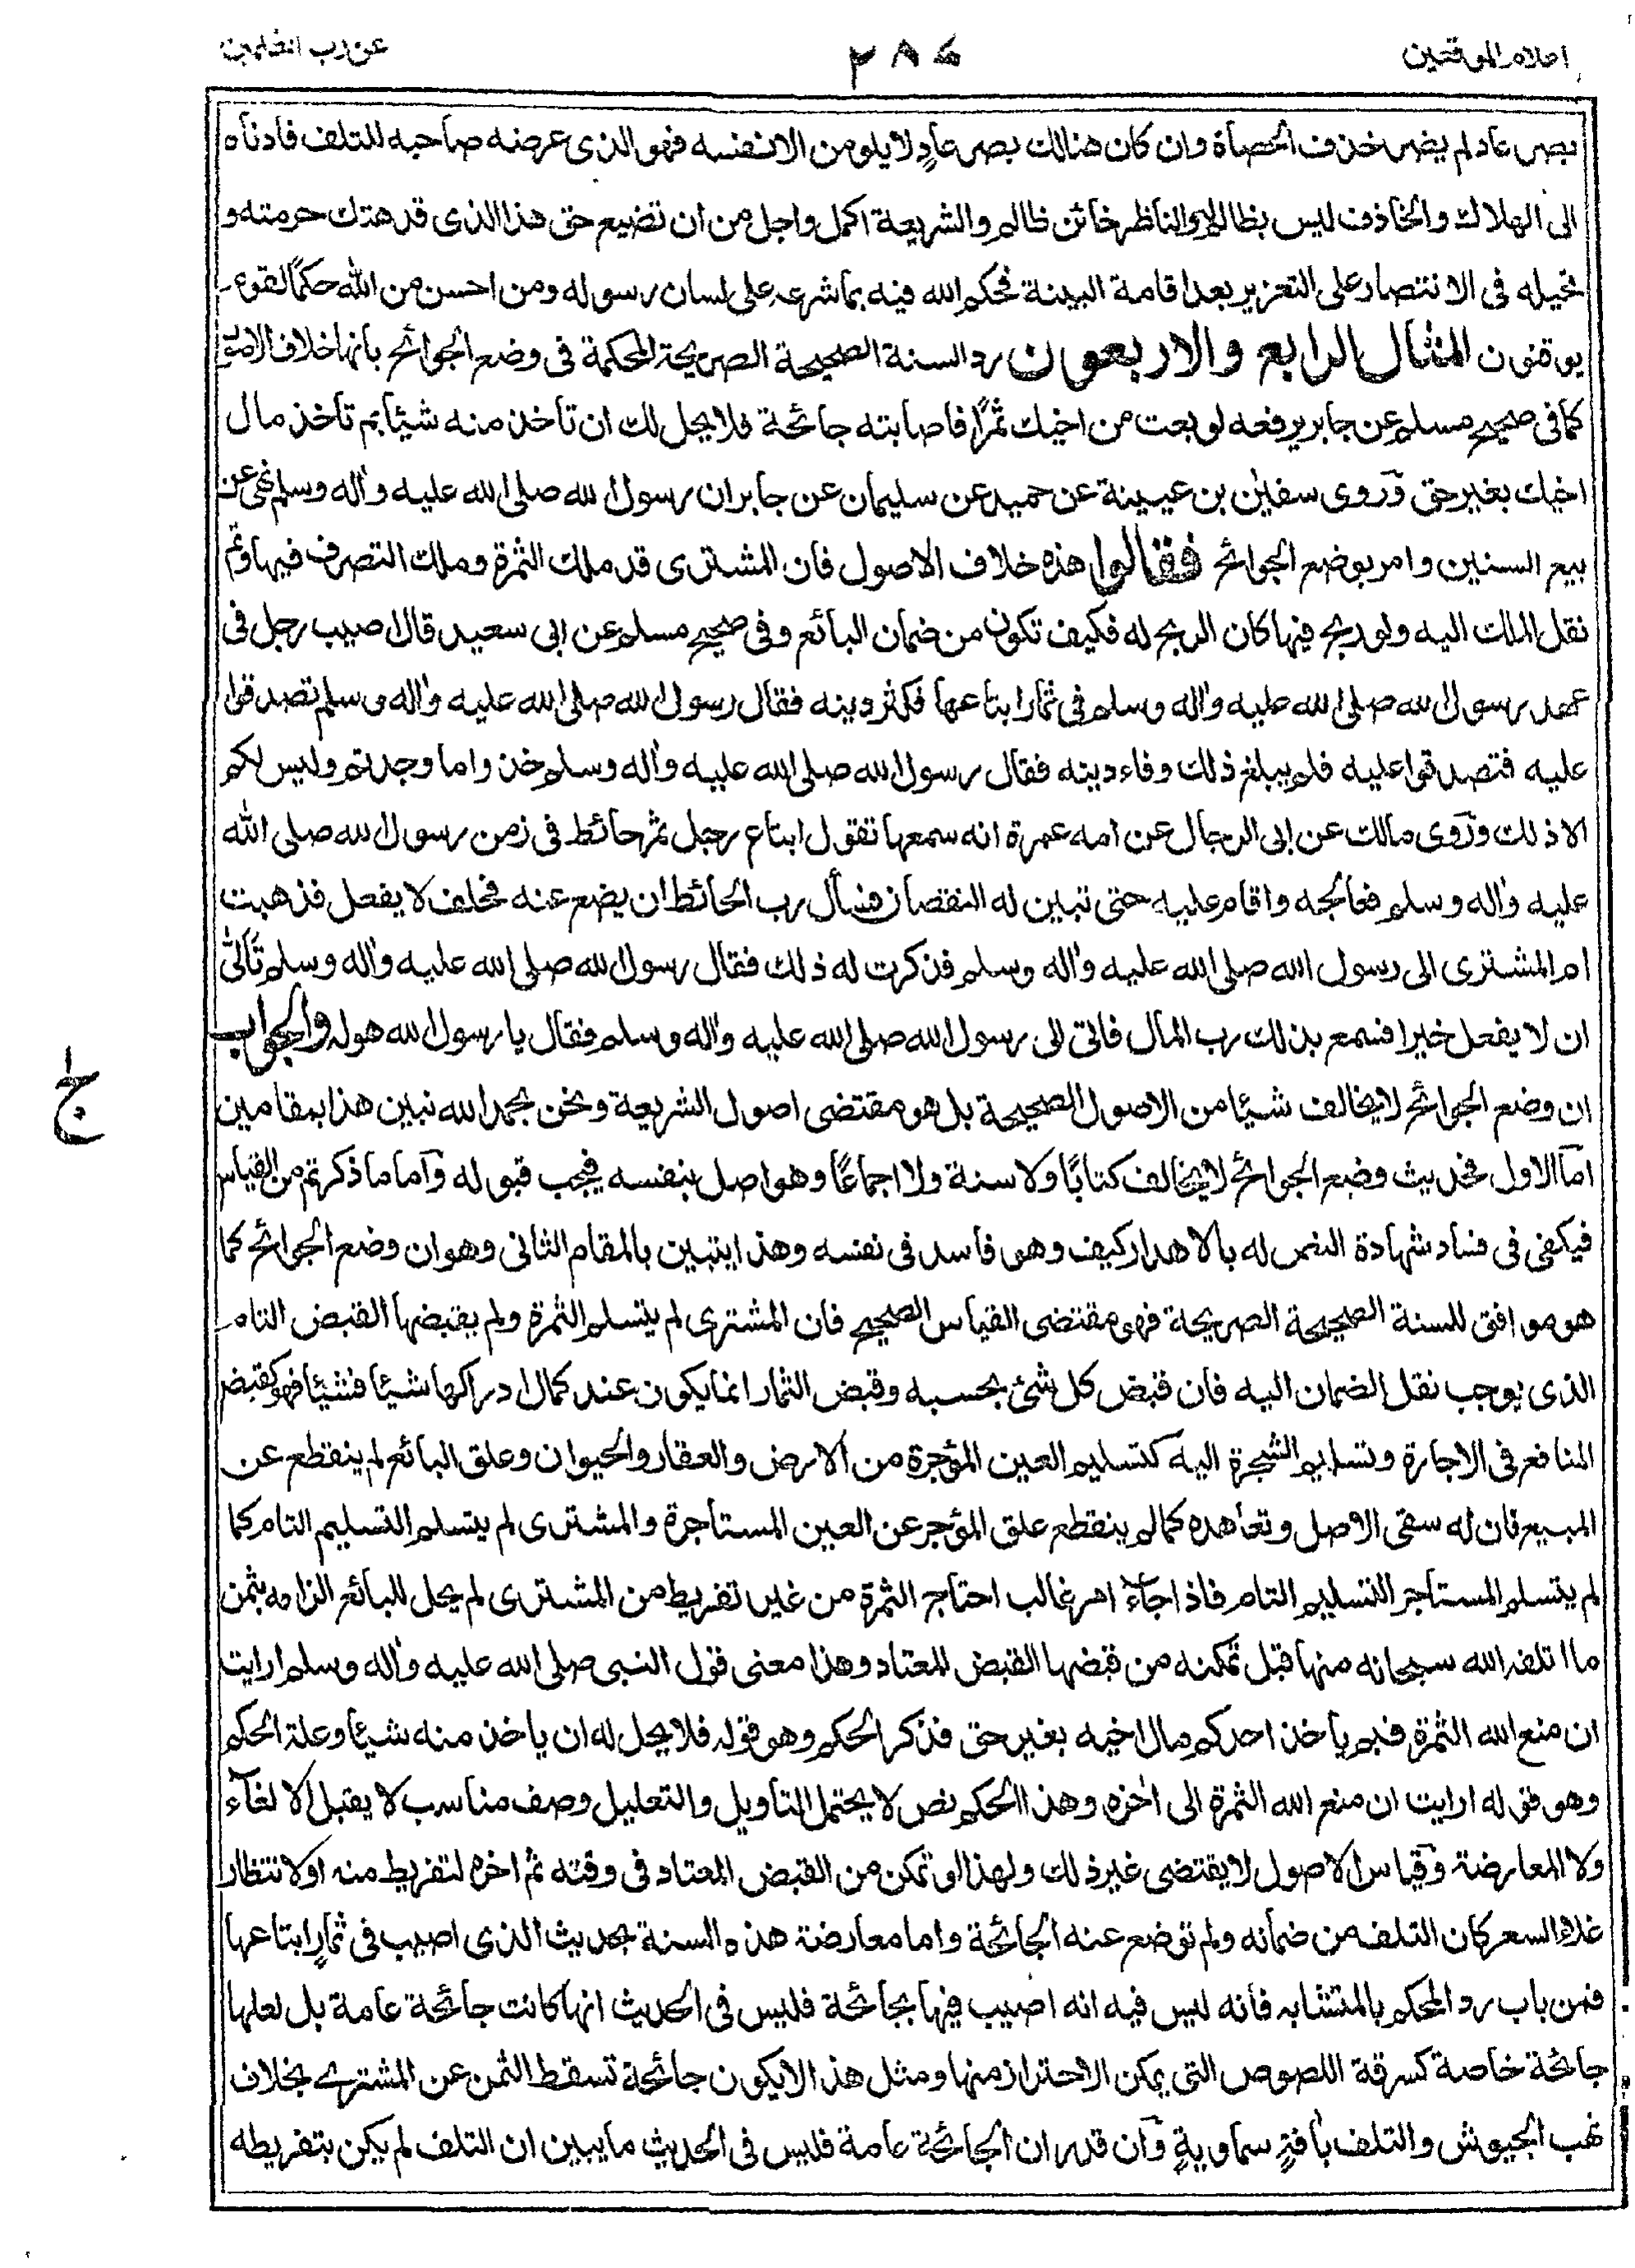 اعلام الموقعين ٢٨٤ عن رب العلمين
بصر عاد لم يضر خذف الحصاة وان كان هنالك بصر عادٍ لا يلومن الا نفسه فهو الذى عرضه صاحبه للتلف فادناه
الى الهلاك والخاذف ليس بظالم والناظر خائن ظالم والشريعة اكمل واجل من ان تضيع حق هذا الذى قد هتك حرمته و
تحيله فى الانتصار على التعزير بعد اقامة البينة فحكم الله فيه بما شرعه على لسان رسوله ومن احسن من الله حكمًا لقوم
يوقنون المثال الرابع والاربعون رد السنة الصحيحة الصريحة المحكمة فى وضع الجوائح بانها خلاف الاصول
كما فى صحيح مسلم عن جابر يرفعه لو بعت من اخيك ثمرًا فاصابته جائحة فلا يحل لك ان تاخذ منه شيئا بم تاخذ مال
اخيك بغير حق وروى سفين بن عيينة عن حميد عن سليمان عن جابر ان رسول الله صلى الله عليه واله وسلم نهى عن
بيع السنين وامر بوضع الجوائح فقالوا هذه خلاف الاصول فان المشترى قد ملك الثمرة وملك التصرف فيها وتم
نقل الملك اليه ولو ربح فيها كان الربح له فكيف تكون من ضمان البائع وفى صحيح مسلم عن ابى سعيد قال اصيب رجل فى
عهد رسول الله صلى الله عليه واله وسلم فى ثمار ابتاعها فكثر دينه فقال رسول الله صلى الله عليه واله وسلم تصدقوا
عليه فتصدقوا عليه فلم يبلغ ذلك وفاء دينه فقال رسول الله صلى الله عليه واله وسلم خذوا ما وجدتم وليس لكم
الا ذلك وروى مالك عن ابى الرجال عن امه عمرة انه سمعها تقول ابتاع رجل ثمر حائط فى زمن رسول الله صلى الله
عليه واله وسلم فعالجه واقام عليه حتى تبين له النقصان فسأل رب الحائط ان يضع عنه فحلف لا يفعل فذهبت
ام المشترى الى رسول الله صلى الله عليه واله وسلم فذكرت له ذلك فقال رسول الله صلى الله عليه واله وسلم تألى
ان لا يفعل خيرا فسمع بذلك رب المال فاتى الى رسول الله صلى الله عليه واله وسلم فقال يا رسول الله هو له والجواب
ان وضع الجوائح لا يخالف شيئا من الاصول الصحيحة بل هو مقتضى اصول الشريعة ونحن بحمد الله نبين هذا بمقامين
اما الاول فحديث وضع الجوائح لا يخالف كتابًا ولا سنة ولا اجماعًا وهو اصل بنفسه فيجب قبوله واما ما ذكرتم من القياس
فيكفى فى فساد شهادة النص له بالاهدار كيف وهو فاسد فى نفسه وهذا يتبين بالمقام الثانى وهو ان وضع الجوائح كما
هو موافق للسنة الصحيحة الصريحة فهو مقتضى القياس الصحيح فان المشترى لم يتسلم الثمرة ولم يقبضها القبض التام
الذى يوجب نقل الضمان اليه فان قبض كل شئ بحسبه وقبض الثمار انما يكون عند كمال ادراكها شيئا فشيئا فهو كقبض
المنافع فى الاجارة وتسليم الشجرة اليه كتسليم العين المؤجرة من الارض والعقار والحيوان وعلق البائع لم ينقطع عن
المبيع فان له سقى الاصل وتعاهده كما لم ينقطع علق المؤجر عن العين المستاجرة والمشترى لم يتسلم التسليم التام كما
لم يتسلم المستاجر التسليم التام فاذا جاء امر غالب اجتاح الثمرة من غير تفريط من المشترى لم يحل للبائع الزامه بثمن
ما اتلفه الله سبحانه منها قبل تمكنه من قبضها القبض المعتاد وهذا معنى قول النبى صلى الله عليه واله وسلم ارايت
ان منع الله الثمرة فبم ياخذ احدكم مال اخيه بغير حق فذكر الحكم وهو قوله فلا يحل له ان ياخذ منه شيئا وعلة الحكم
وهو قوله ارايت ان منع الله الثمرة الى اخره وهذا الحكم نص لا يحتمل التاويل والتعليل وصف مناسب لا يقبل الالغاء
ولا المعارضة وقياس الاصول لا يقتضى غير ذلك ولهذا لو تمكن من القبض المعتاد فى وقته ثم اخره لتفريط منه او لانتظار
غلاء السعر كان التلف من ضمانه ولم توضع عنه الجائحة واما معارضة هذه السنة بحديث الذى اصيب فى ثمارٍ ابتاعها
فمن باب رد المحكم بالمتشابه فانه ليس فيه انه اصيب فيها بجائحة فليس فى الحديث انها كانت جائحة عامة بل لعلها
جائحة خاصة كسرقة اللصوص التى يمكن الاحتراز منها ومثل هذا لا يكون جائحة تسقط الثمن عن المشترى بخلاف
نهب الجيوش والتلف بافةٍ سماويةٍ وان قدر ان الجائحة عامة فليس فى الحديث ما يبين ان التلف لم يكن بتفريطه